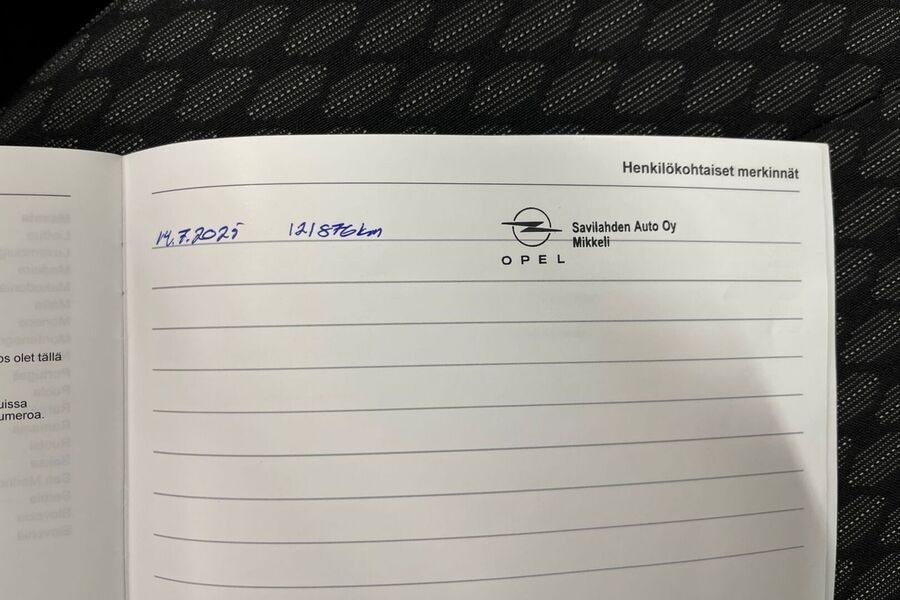 Henkilökohtaiset merkinnät
14.7.2025 121876km
Savilahden Auto Oy
Mikkeli
OPEL
os olet tällä
uissa
umeroa.